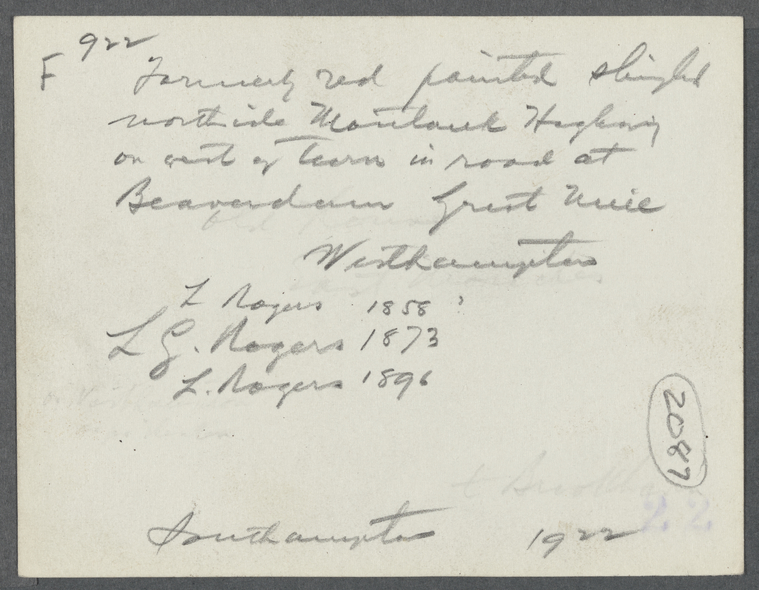 F 922
Formerly red painted shingled
northside Montauk Highway
on west of turn in road at
Beaverdam Grist Mill
Westhampton
L Rogers 1858 ?
L G. Rogers 1873
L. Rogers 1896
2087
Southampton 1922